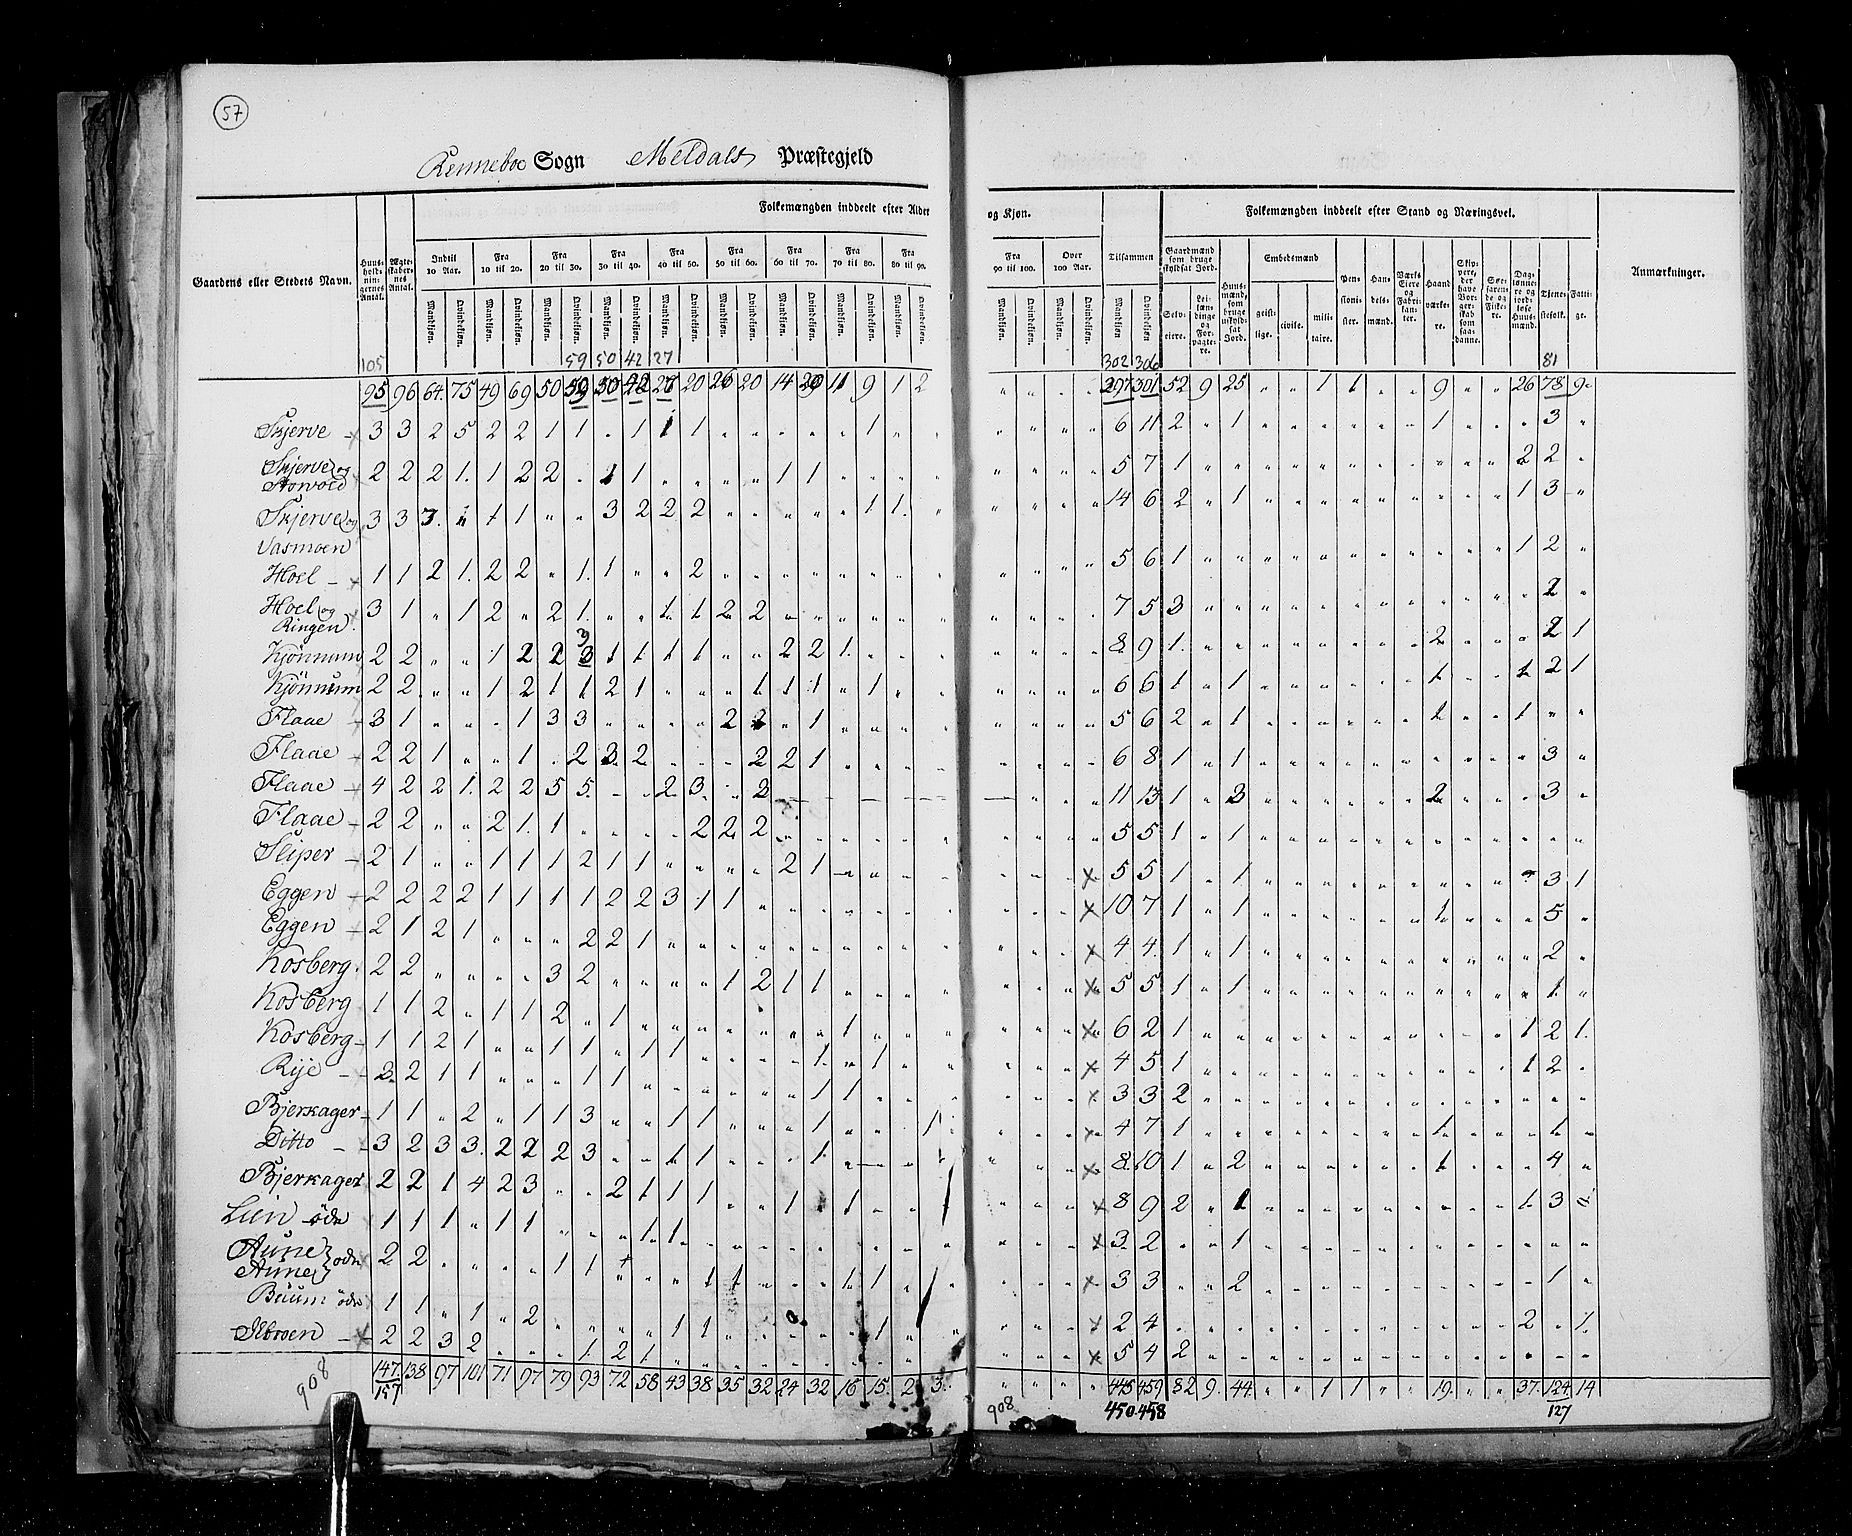 57
Renneboe Sogn Meldals Præstegjeld
Gaardens eller Stedets Navn. Huus-hold-nin-gernes Antal. Ægte-skaber-nes Antal. Folkemængden inddeelt efter Alder og Kjøn. Tilsammen Folkemængden inddeelt efter Stand og Næringsvei. Anmærkninger.
Indtil 10 Aar. Fra 10 til 20. Fra 20 til 30. Fra 30 til 40. Fra 40 til 50. Fra 50 til 60. Fra 60 til 70. Fra 70 til 80. Fra 80 til 90. Fra 90 til 100. Over 100 Aar.
Mandkjøn. Qvindekjøn. Mandkjøn. Qvindekjøn. Mandkjøn. Qvindekjøn. Mandkjøn. Qvindekjøn. Mandkjøn. Qvindekjøn. Mandkjøn. Qvindekjøn. Mandkjøn. Qvindekjøn. Mandkjøn. Qvindekjøn. Mandkjøn. Qvindekjøn. Mandkjøn. Qvindekjøn. Mandkjøn. Qvindekjøn. Mandkjøn. Qvindekjøn.
Gaardmænd som bruge skyldsat Jord. Selv-eiere. Lei-læn-dinge og For-pagte-re. Huus-mænd, som bruge uskyld-sat Jord. Embedsmænd geist-lige. civile. mili-taire. Pen-sioni-ster. Han-dels-mænd. Værks Eiere og Fabri-kan-ter. Haand værke-re. Skip-pere, der have Bor-ger-skab som saa-danne. Søe-faren-de og Fiske-re. Dag-lønne-re og jord-løse Huus-mænd. Tjene-stefolk. Fatti-ge.
105 59 50 42 27 302 306 81
95 96 64 75 49 69 50 59 50 42 27 20 26 20 14 20 11 9 1 2 297 301 52 9 25 " " 1 1 " " 9 " " 26 78 9
Skjerve 3 3 2 5 2 2 1 1 " 1 1 1 " " " " " 1 " " 6 11 2 " 1 " " " " " " 1 " " " 3 "
Skjerve og 2 2 2 1 1 2 2 " 1 1 " " " " 1 1 " " " " 5 7 1 " " " " " " " " " " " 2 2 "
Skjerve og 3 3 3 " 1 1 " " 3 2 2 2 " " " " " 1 1 " 14 6 2 " 1 " " " " " " " " " 1 3 "
Vasmoen
Hoel 1 1 2 1 2 2 " 1 1 " " 2 " " " " " " " " 5 6 1 " " " " " " " " " " " 1 2 "
Hoel og 3 1 " 1 2 " 2 1 " " 1 1 2 2 " " " " " " 7 5 3 " " " " " " " " " " " " 2 "
Ringen
Kjönnum 2 2 " " 1 2 2 3 1 1 1 1 " " 2 2 1 " " " 8 9 1 " " " " " " " " 2 " " " 2 1
Kjönnum 2 2 " " 1 2 1 1 2 1 " " " 1 1 1 " 1 " " 6 6 1 " 1 " " " " " " 1 " " 1 2 1
Flaae 3 1 " " " 1 3 3 " " " " 2 2 " 1 " " " " 5 6 2 " 1 " " " " " " 1 " " 1 " "
Flaae 2 2 1 " " 1 " 2 3 2 " " " 2 2 1 " " " " 6 8 1 " 1 " " " " " " " " " " 3 "
Flaae 4 2 2 1 2 2 5 5 " " 2 3 " 2 11 13 1 " 3 " " " " " " 2 " " " 3 "
Flaae 2 2 " " 2 1 1 " " " " 2 2 2 " " " " " " 5 5 1 " 1 " " " " " " " " " " " "
Sliper 2 1 " " 1 1 1 2 1 1 " " " " 2 1 " " " " 5 5 1 " 1 " " " " " " " " " " 3 1
Eggen 2 2 2 2 1 1 1 1 2 2 3 1 1 " " " " " " " 10 7 1 " 1 " " " " " " 1 " " " 5 "
Eggen 2 1 2 1 " " " 2 2 1 " " " " " " " " " " 4 4 1 " 1 " " " " " " " " " " 2 "
Kosberg 2 2 " " " " 3 2 " " " " 1 2 1 1 " " " " 5 5 1 " 1 " " " " " " " " " " 1 "
Kosberg 1 1 2 " 1 1 2 " 1 " " " " " " " 1 " " " 6 2 1 " " " " " " " " " " " 1 2 1
Kosberg 1 1 2 1 " " 1 1 " 1 1 " " " " 1 " 1 " " 4 5 1 " " " " " " " " " " " 1 2 "
Rije 2 2 1 1 " " " 1 1 " " " " " " 1 1 " " " 3 3 2 " " " " " " " " " " " " " "
Bjerkager 1 1 " 2 " 1 1 3 " " 1 1 " " " 1 " " " 1 4 7 1 " " " " " " " " 1 " " " 1 "
Ditto 3 2 3 3 2 2 2 3 " " 1 1 " " " 1 " " " " 8 10 1 " 2 " " " " " " 1 " " " 4 "
Bjerkager 2 2 1 4 2 3 " " 2 1 1 1 " " 1 " 1 " " " 8 9 2 " 1 " " " " " " " " " 1 3 "
Lien öde 1 1 1 " 1 1 " " " 1 1 " " " " " " " " " 3 2 " " 1 " " " " " " " " " " " "
Aune öde 2 2 " " " " 1 1 " " " 1 1 " " 1 1 " " 3 3 " " 2 " " " " " " " " " " 1 "
Aune
Buum öde 1 1 " 1 " 2 " " " " 1 1 " " " " " 1 " " 2 4 " " " " " " " " " " " " 2 " 1
2 2 3 2 " " " 1 2 1 " " " " " " " " " " 5 4 2 " " " " " " " " " " " " " "
147 138 97 101 71 97 79 93 72 58 43 38 35 32 24 32 16 15 2 3 445 459 82 9 44 " " 1 1 " " 19 " " 37 124 14
157 450 458 127
908 908